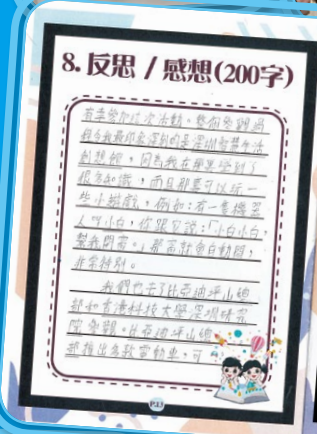 8. 反思 / 感想(200字)
有幸參加這次活動。整個參觀過
程令我最印象深刻的是深圳智慧生活
創想館，因為我在那裏學到了
很多知識，而且那裏可以玩一
些小遊戲，例如：有一隻機器
人叫小白，你跟它說：「小白小白，
幫我開窗。」那窗就會自動開，
非常特別。
我們也去了比亞迪坪山總
部和香港科技大學深圳研究
院參觀。比亞迪坪山總
部推出多款電動車，可
P.13